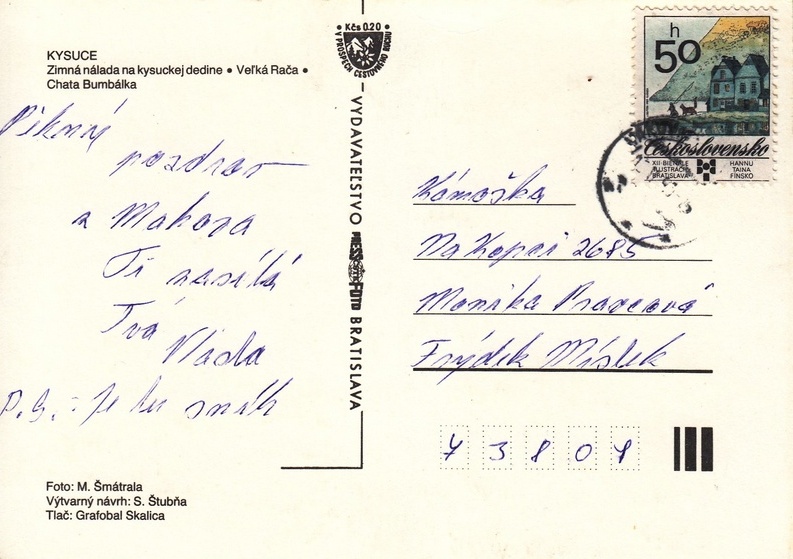 KYSUCE
Zimná nálada na kysuckej dedine • Veľká Rača •
Chata Bumbálka
Pěkný
pozdrav
z Makova
Ti zasílá
Tvá
Vlaďa
P.S.: Je tu sníh
Foto: M. Šmátrala
Výtvarný návrh: S. Štubňa
Tlač: Grafobal Skalica
Kčs 0.20
V PROSPECH CESTOVNÉHO RUCHU
VYDAVATEĽSTVO PRESSFOTO BRATISLAVA
50 h
Československo
XII·BIENÁLE
ILUSTRÁCIÍ
BRATISLAVA
HANNU
TAINA
FÍNSKO
Kámoška
Na Kopci 2685
Monika
Frýdek Místek
73801